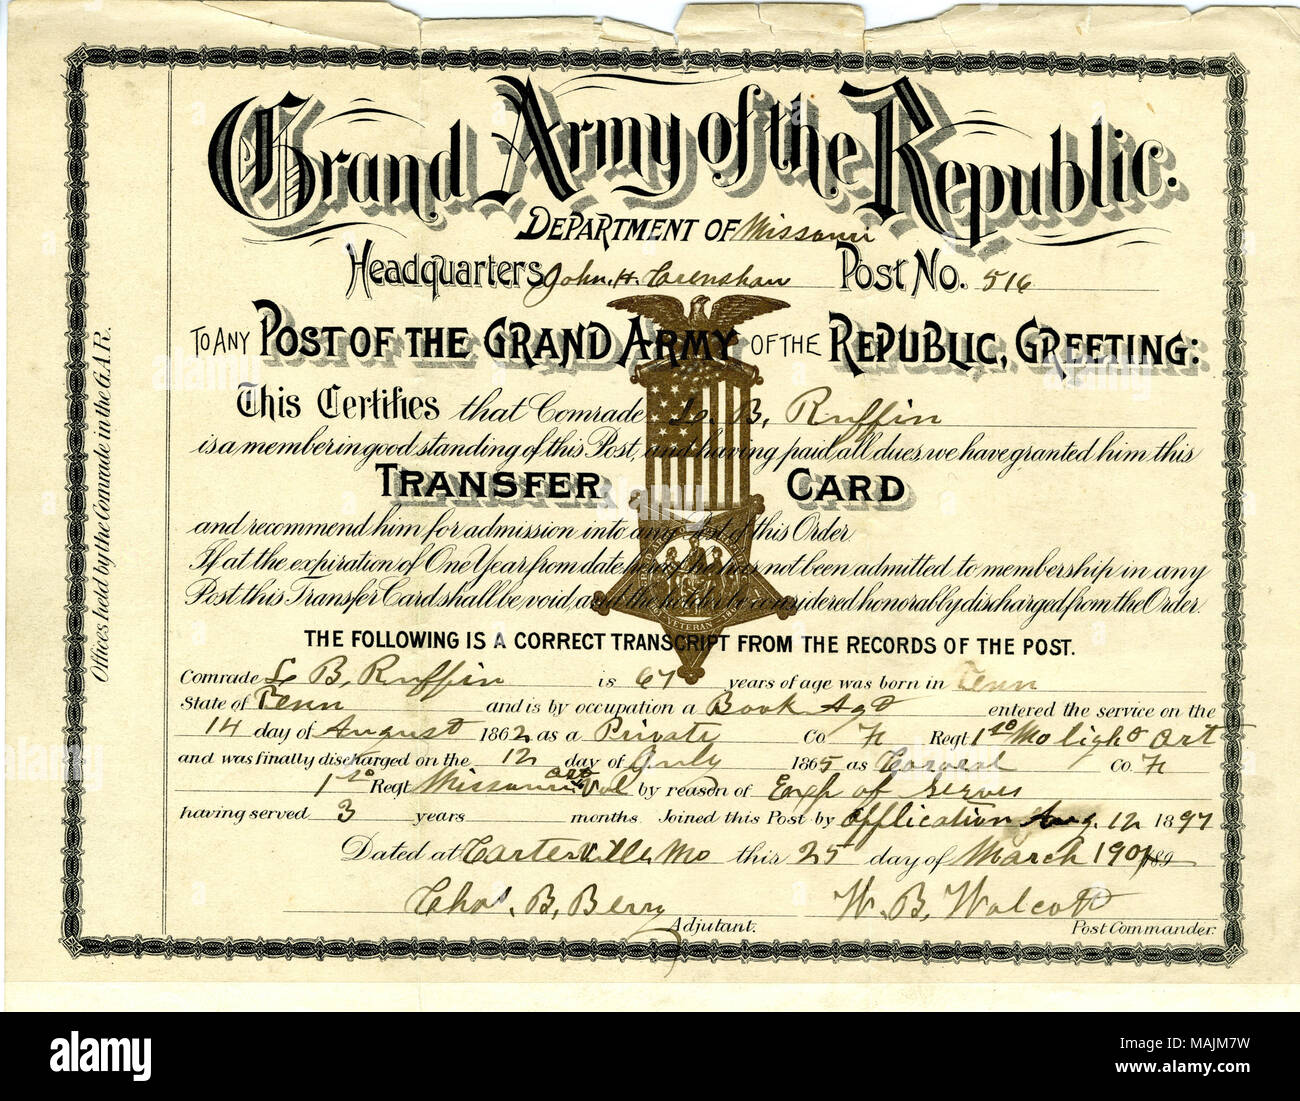 Grand Army of the Republic.
DEPARTMENT OF Missouri
Headquarters John. H. Crenshaw Post No. 516
TO ANY POST OF THE GRAND ARMY OF THE REPUBLIC, GREETING:
This Certifies that Comrade L. B. Ruffin
is a member in good standing of this Post, and having paid all dues we have granted him this
TRANSFER CARD
and recommend him for admission into any Post of this Order.
If at the expiration of One Year from date hereof he has not been admitted to membership in any
Post this Transfer Card shall be void, and the holder be considered honorably discharged from the Order.
THE FOLLOWING IS A CORRECT TRANSCRIPT FROM THE RECORDS OF THE POST.
Comrade L B. Ruffin is 67 years of age was born in Tenn
State of Tenn and is by occupation a Book Agt entered the service on the
14 day of August 1862 as a Private Co. H Regt 1st Mo light Art
and was finally discharged on the 12 day of July 1865 as Corperal Co. H
1st Regt Missouri Art Vol by reason of Exp of Serves
having served 3 years months. Joined this Post by application Aug. 12 1897
Dated at Carterville, Mo this 25 day of March 1901 189
Chas. B. Berry W. B. Wolcott
Adjutant. Post Commander.
Offices held by the Comrade in the G.A.R.
VETERAN
alamy
Image ID: MAJM7W
www.alamy.com